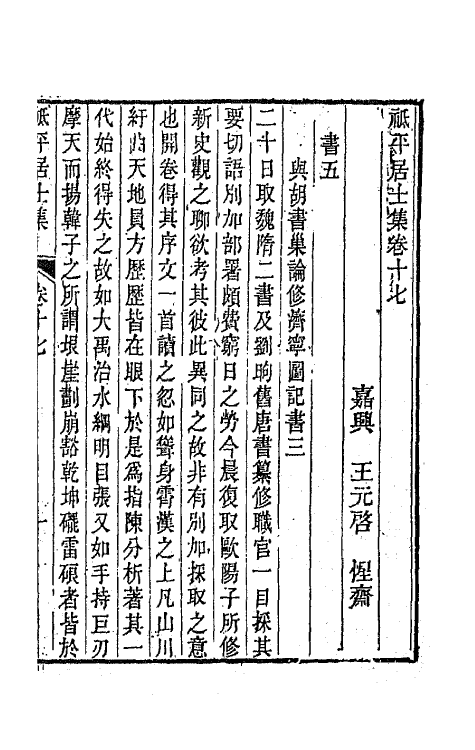 祗平居士集卷十七
嘉興 王元啓 惺齋
書五
與胡書巢論修濟寧圖記書三
二十日取魏隋二書及劉昫舊唐書纂修職官一目採其
要切語別加部署頗費窮日之勞今晨復取歐陽子所修
新史觀之聊欲考其彼此異同之故非有別加採取之意
也開卷得其序文一首讀之忽如聳身霄漢之上凡山川
紆曲天地員方歷歷皆在眼下於是爲指陳分析著其一
代始終得失之故如大禹治水綱明目張又如手持巨刃
摩天而揚韓子之所謂垠崖劃崩豁乾坤礲雷硠者皆於
祗平居士集 卷十七 一